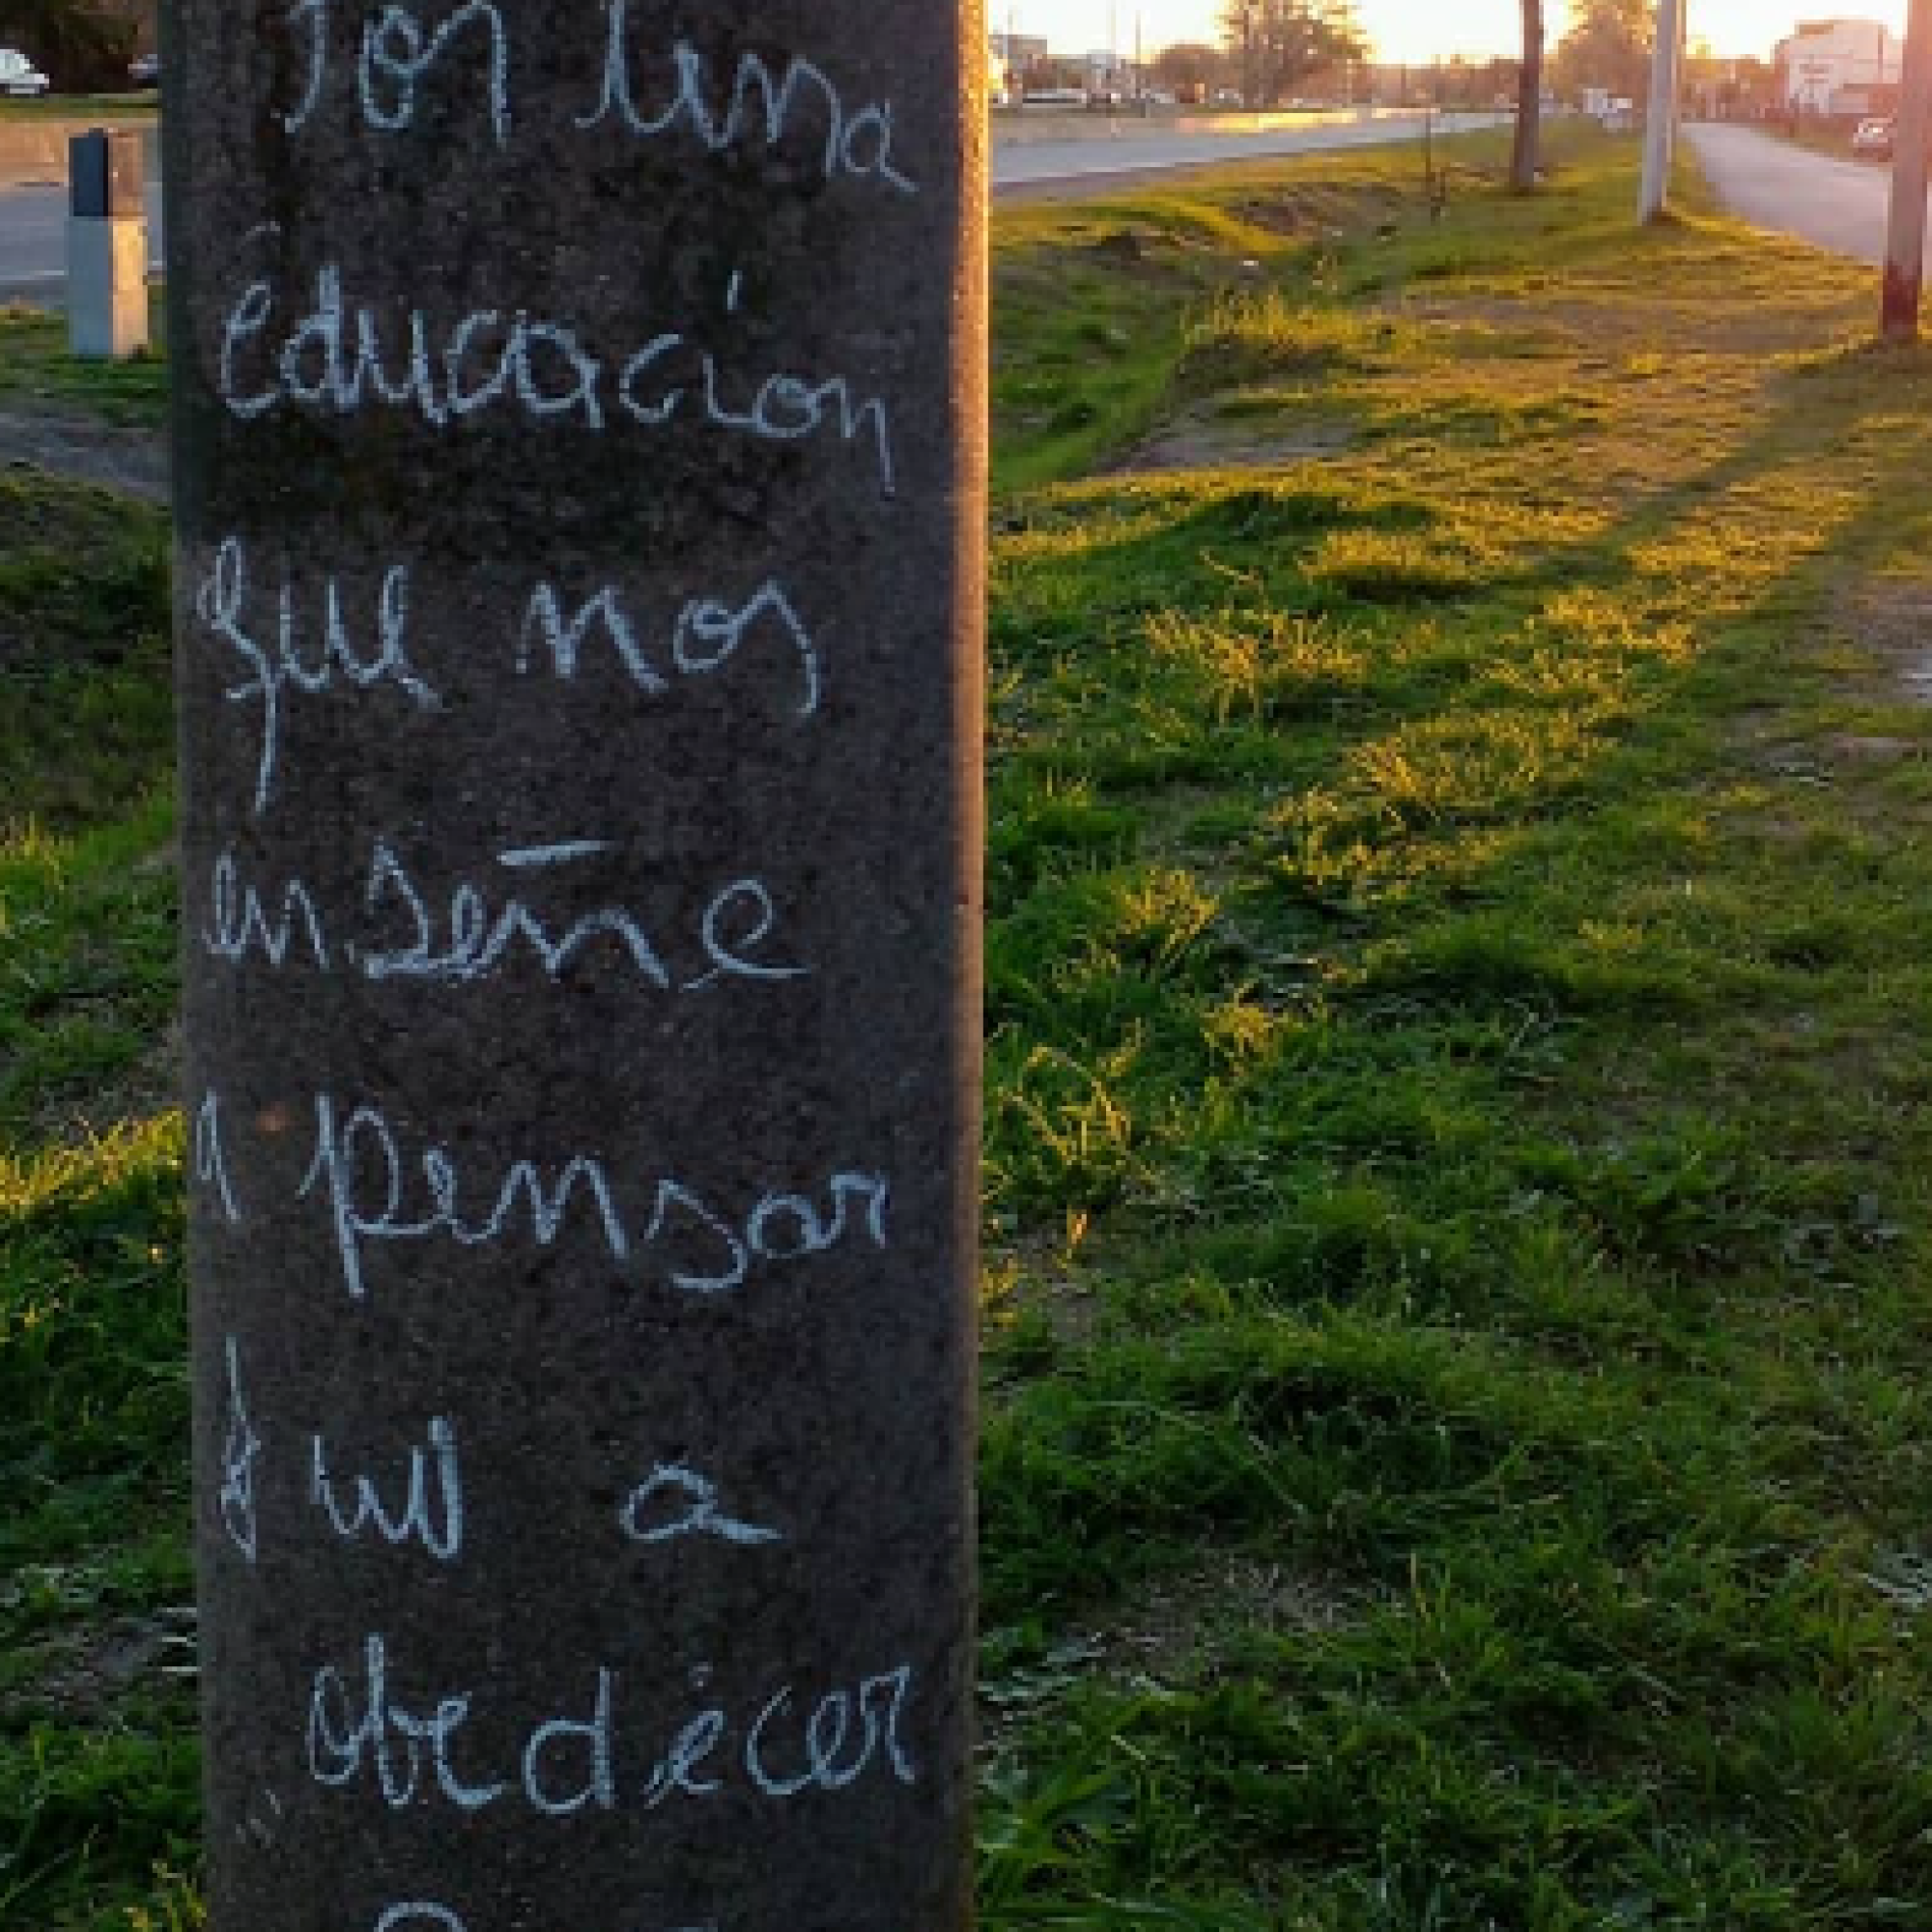 Por una
educación
que nos
enseñe
a pensar
y no a
obedecer